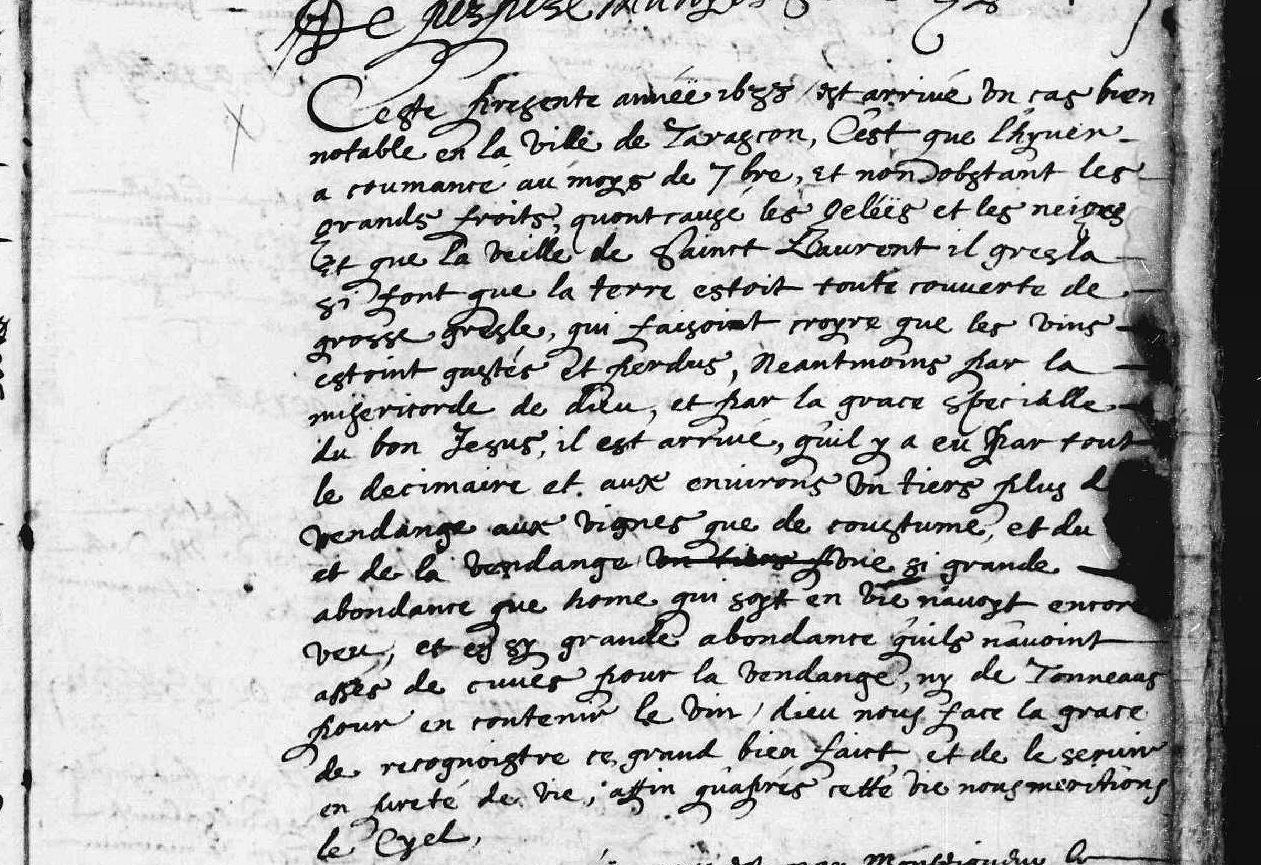 De
Ceste presente année 1638 est arrivé un cas bien
notable en la ville de Tarascon, C'est que l'hyver
a coumancé au moys de 7bre, Et nonobstant les
grands froits, qu'ont causé les gelëes et les neiges
Et que la veille de Sainct Laurent il gresla
si font que la terre estoit toute couverte de
grosse gresle, qui faisoint croyre que les vins
estoint gastés et perdus, Neantmoins par la
misericorde de dieu, et par la grace specialle
du bon Jesus, il est arrivé, qu'il y a eu par tout
le decimaire et aux environs un tiers plus d
vendange aux vignes que de coustume, et du
et de la vendange un tiers si grande
abondance que home qui soyt en vie n'avoyt encore
veu, et en sy grande abondance qu'ils n'avoint
asses de cuves pour la vendange, ny de Tonneaus
pour en contenir le vin / dieu nous face la grace
de recognoistre ce grand bien faict et de le servir
en pureté de vie, affin qu'aprés cette vie nous meritions
le Cyel,
par Monseigneur le